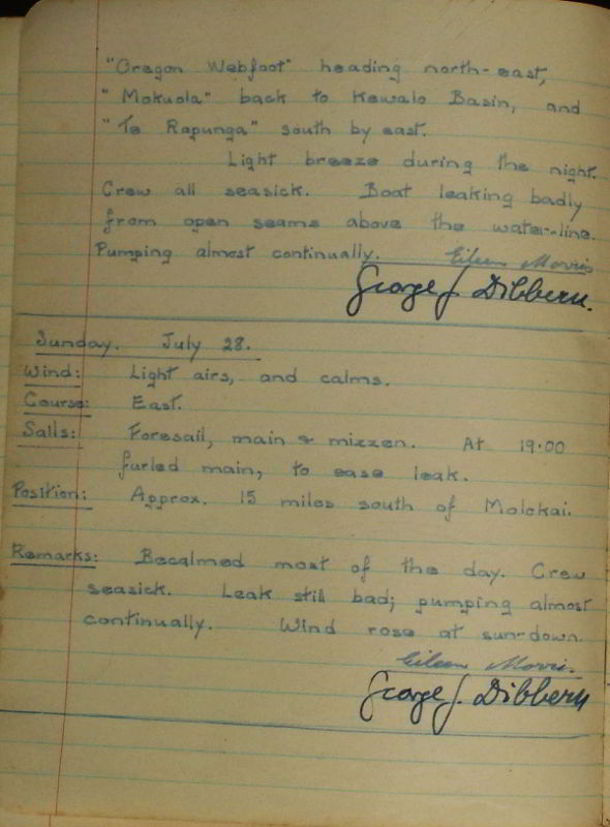 "Oregon Webfoot" heading north-east,
"Mokuola" back to Kewalo Basin, and
"Te Rapunga" south by east.
Light breeze during the night.
Crew all seasick. Boat leaking badly
from open seams above the water-line.
Pumping almost continually.
Eileen Morris
George J Dibbern.
Sunday. July 28.
Wind: Light airs, and calms.
Course: East.
Sails: Foresail, main & mizzen. At 19.00
furled main, to ease leak.
Position: Approx. 15 miles south of Molokai.
Remarks: Becalmed most of the day. Crew
seasick. Leak still bad; pumping almost
continually. Wind rose at sun-down.
Eileen Morris.
George J. Dibbern